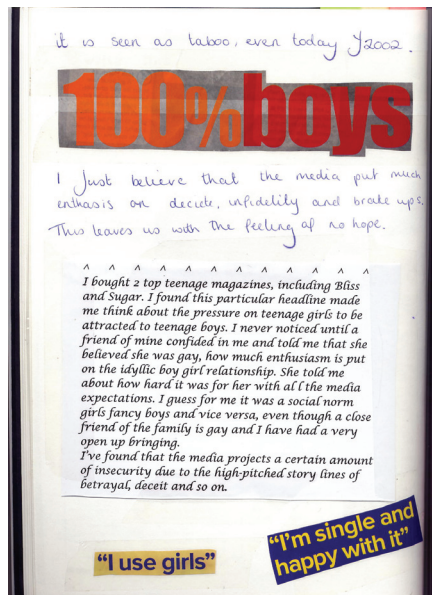 it is seen as taboo, even today J2002.
100% boys
I Just believe that the media put much
enthasis on decute, infidelity and brake ups.
This leaves us with the feeling of no hope.
^ ^ ^ ^ ^ ^ ^ ^ ^ ^ ^ ^
I bought 2 top teenage magazines, including Bliss
and Sugar. I found this particular headline made
me think about the pressure on teenage girls to be
attracted to teenage boys. I never noticed until a
friend of mine confided in me and told me that she
believed she was gay, how much enthusiasm is put
on the idyllic boy girl relationship. She told me
about how hard it was for her with all the media
expectations. I guess for me it was a social norm
girls fancy boys and vice versa, even though a close
friend of the family is gay and I have had a very
open up bringing.
I've found that the media projects a certain amount
of insecurity due to the high-pitched story lines of
betrayal, deceit and so on.
"I'm single and
happy with it"
"I use girls"